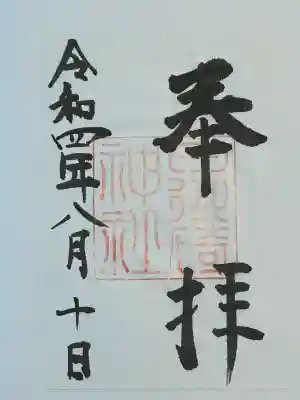 奉拝
神社
令和四年八月十日